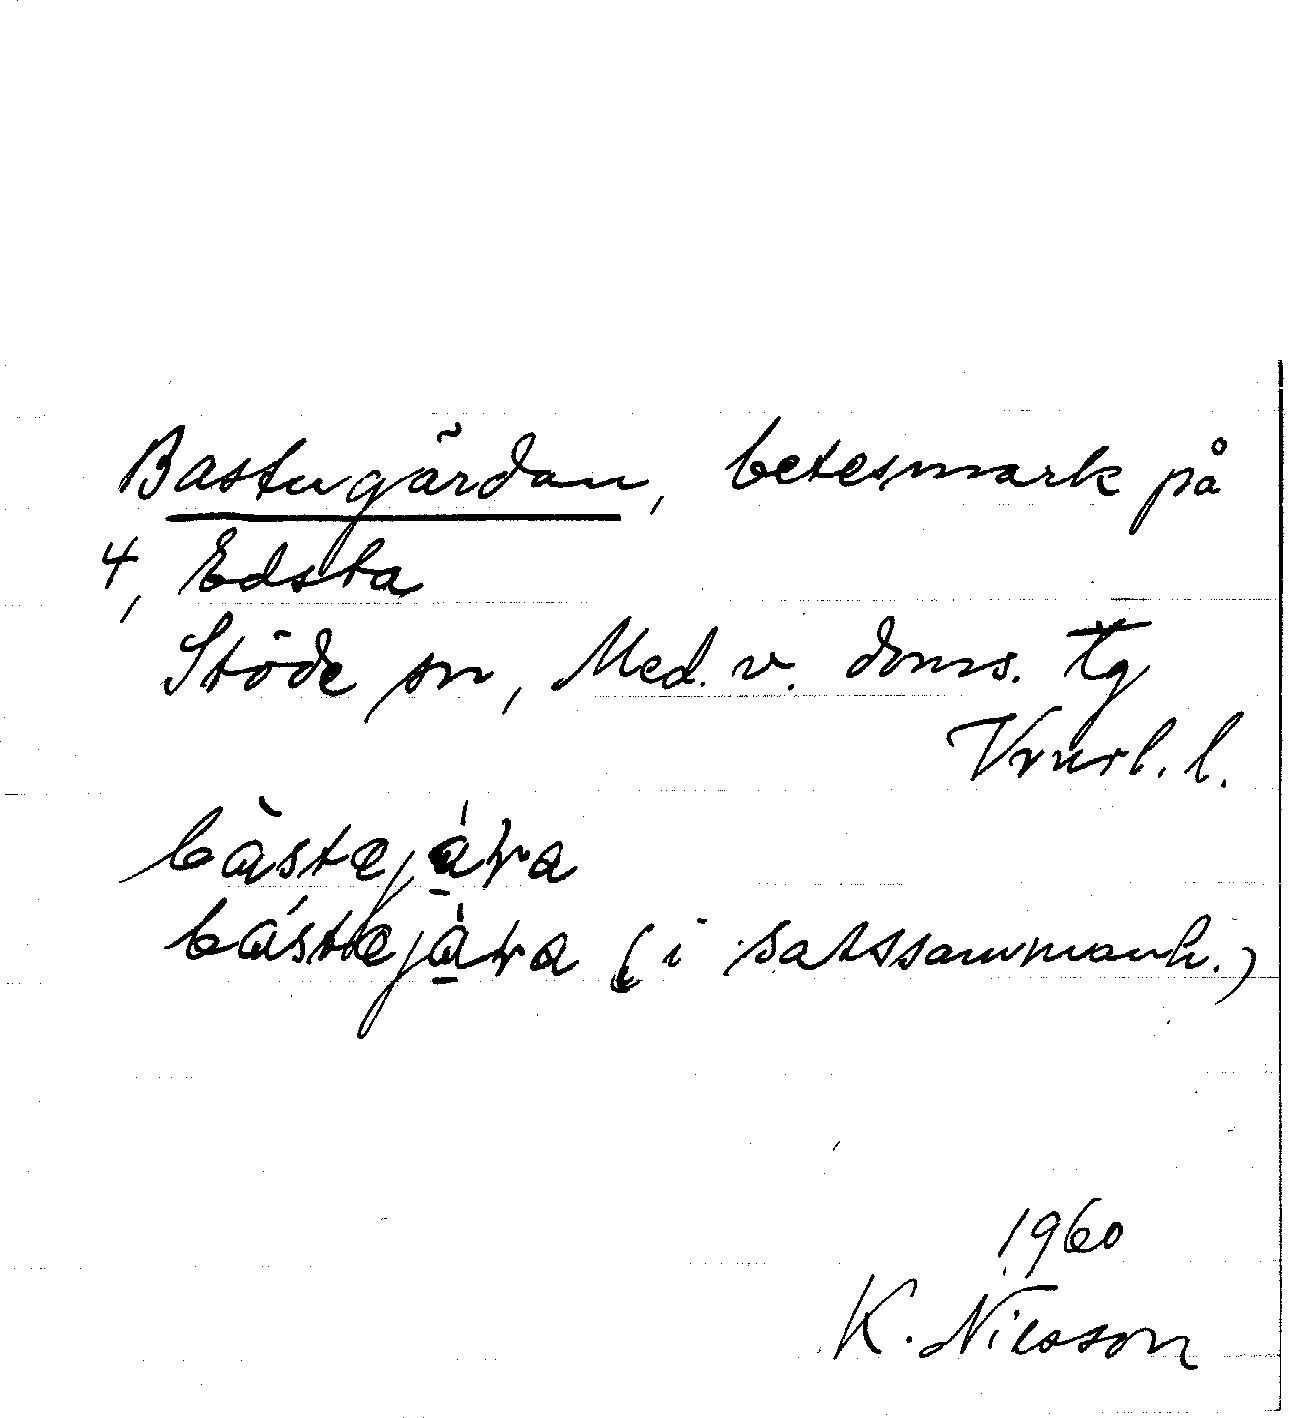 Bastugärdan, betesmark på
4, Edsta
Stöde sn, Med. v. doms. tg
Vnorl. l.
bàstejára
bástejàra (i satssammanh.)
1960
K. Nilsson